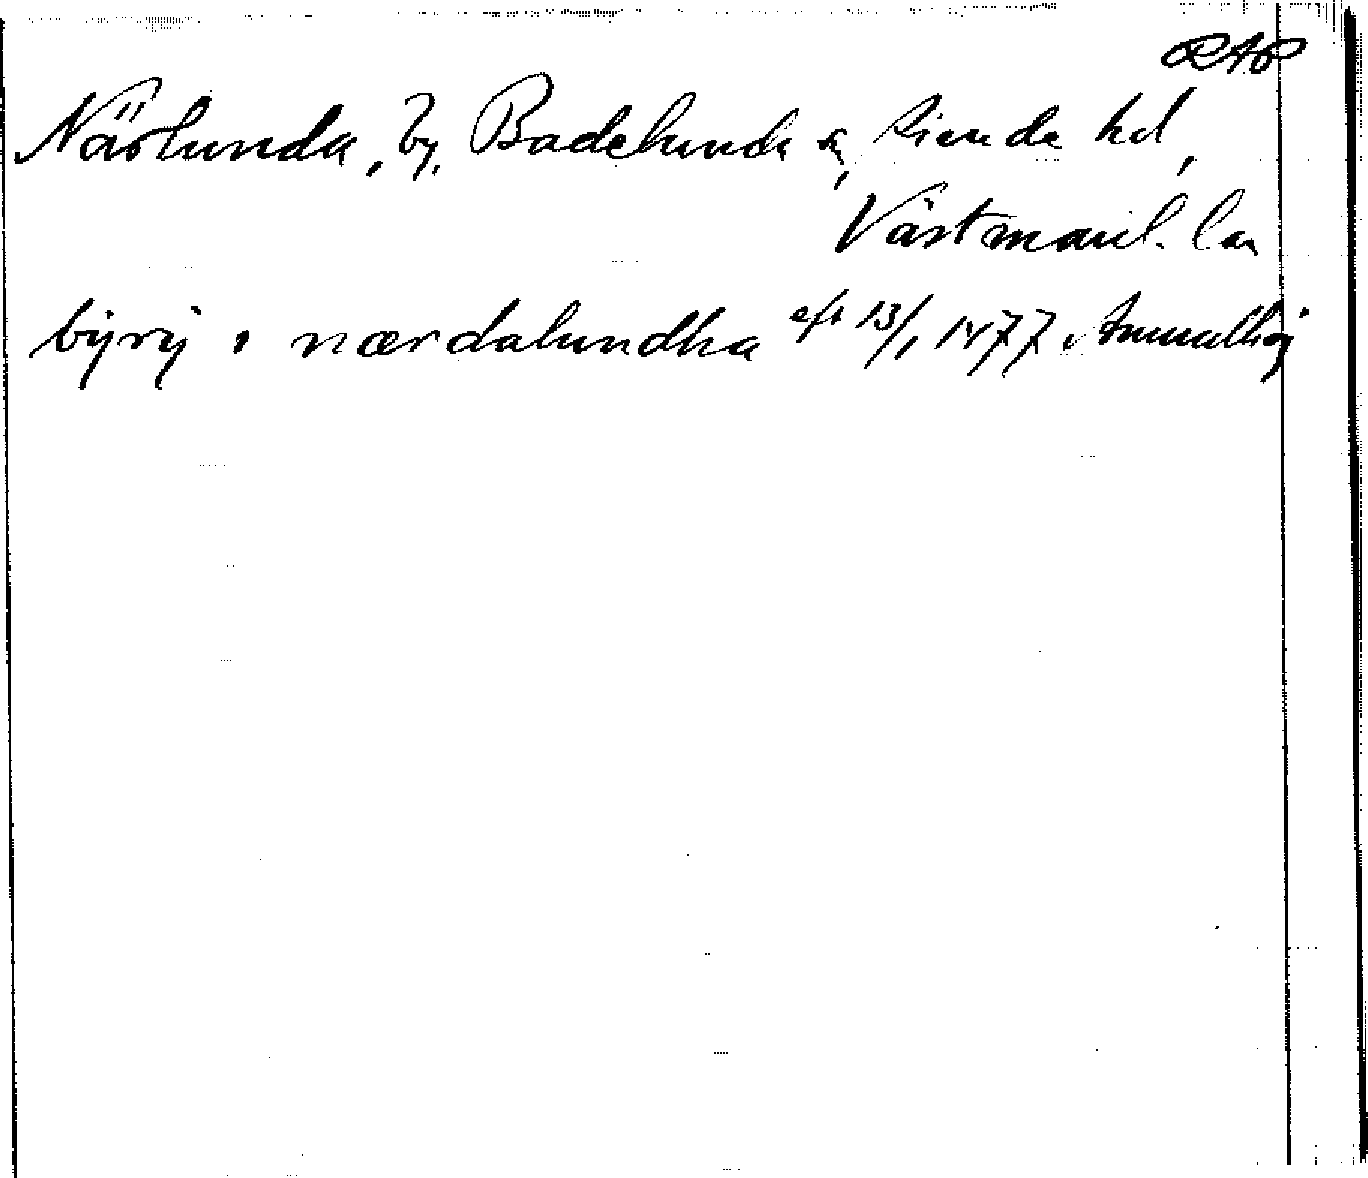 RAP
Närlunda, by, Badelunda sn, Siende hd,
Västmanl. län
byry i nærdalundha eft 13/1 1477 Anundhög